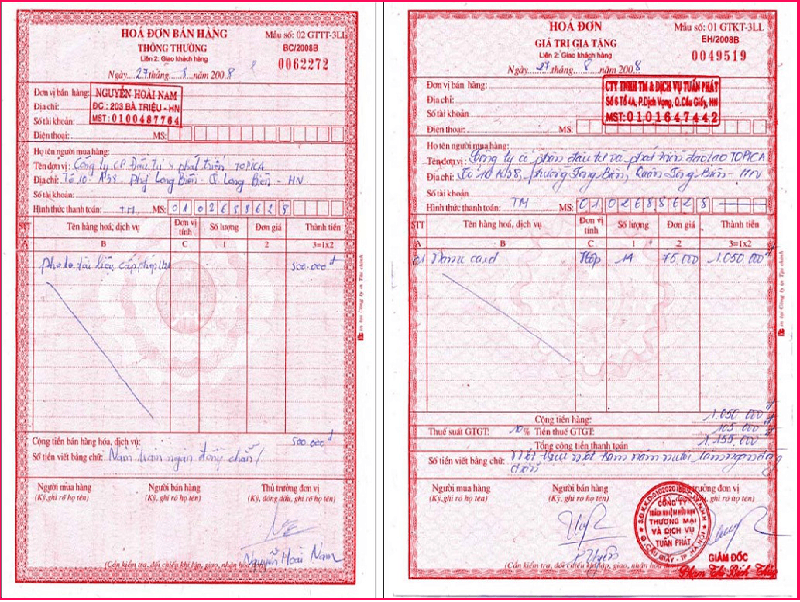 HOÁ ĐƠN BÁN HÀNG
THÔNG THƯỜNG
Liên 2: Giao khách hàng
Mẫu số: 02 GTTT-3LL
BC/2008B
0062272
Ngày 27 tháng 8 năm 2008
Đơn vị bán hàng:
NGUYỄN HOÀI NAM
Địa chỉ:
ĐC : 203 BÀ TRIỆU - HN
Số tài khoản
MST: 0100487764
Điện thoại: MS:
Họ tên người mua hàng:
Tên đơn vị: Công ty CP Đầu tư & phát triển TOPICA
Địa chỉ: Tổ 10 A38 Phg Long Biên - Q Long Biên - HN
Số tài khoản:
Hình thức thanh toán: TM MS: 0102688628
STT Tên hàng hoá, dịch vụ Đơn vị tính Số lượng Đơn giá Thành tiền
A B C 1 2 3=1x2
Photo tài liệu 500.000đ
Cộng tiền bán hàng hóa, dịch vụ: 500.000đ
Số tiền viết bằng chữ: Năm trăm ngàn đồng chẵn/
Người mua hàng Người bán hàng Thủ trưởng đơn vị
(Ký, ghi rõ họ tên) (Ký, ghi rõ họ tên) (Ký, đóng dấu, ghi rõ họ tên)
Nguyễn Hoài Nam
HOÁ ĐƠN
GIÁ TRỊ GIA TĂNG
Liên 2: Giao khách hàng
Mẫu số: 01 GTKT-3LL
EH/2008B
0049519
Ngày 27 tháng 8 năm 2008
Đơn vị bán hàng:
CTT TNHH TM & DỊCH VỤ TUẤN PHÁT
Địa chỉ:
Số 6 Tổ 4A, P.Dịch Vọng, Q.Cầu Giấy, HN
Số tài khoản
MST: 0101647442
Điện thoại: MS:
Họ tên người mua hàng:
Tên đơn vị: Công ty cổ phần đầu tư và phát triển đào tạo TOPICA
Địa chỉ: Số 10 A38, phường Long Biên, Quận Long Biên - HN
Số tài khoản:
Hình thức thanh toán: TM MS: 0102688628
STT Tên hàng hoá, dịch vụ Đơn vị tính Số lượng Đơn giá Thành tiền
A B C 1 2 3=1x2
01 Name card Hộp 14 75.000 1.050.000đ
Cộng tiền hàng: 1.050.000đ
Thuế suất GTGT: 10% Tiền thuế GTGT: 105.000đ
Tổng cộng tiền thanh toán 1.155.000đ
Số tiền viết bằng chữ: Một triệu một trăm năm mươi lăm ngàn đồng
chẵn
Người mua hàng Người bán hàng Thủ trưởng đơn vị
(Ký, ghi rõ họ tên) (Ký, ghi rõ họ tên)
CÔNG TY
TRÁCH NHIỆM HỮU HẠN
THƯƠNG MẠI
VÀ DỊCH VỤ
TUẤN PHÁT
GIÁM ĐỐC
Phạm Thị Bích Thủy